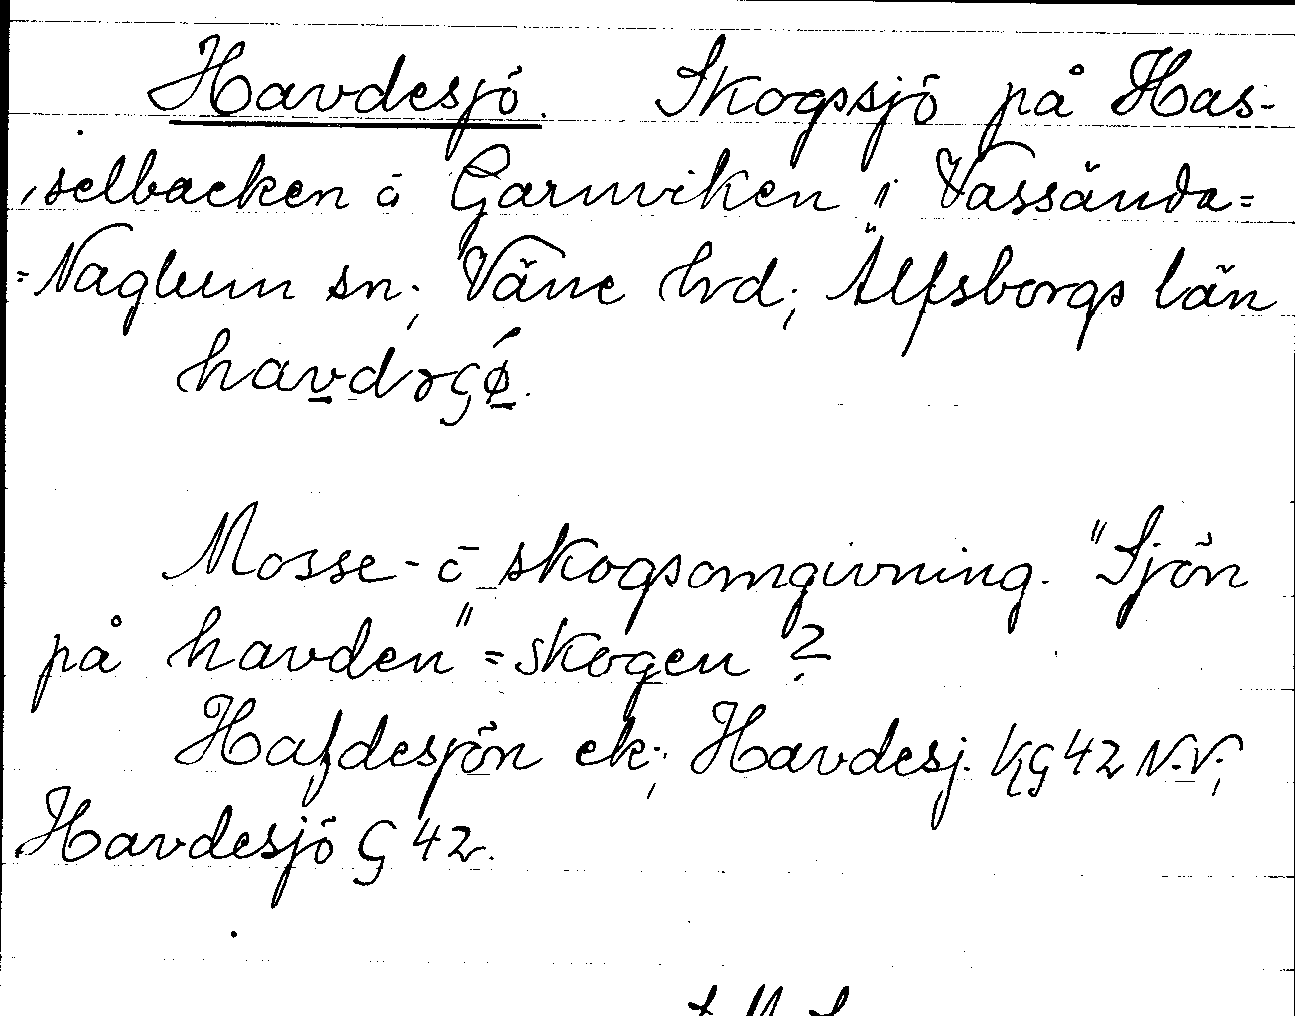 Havdesjö. Skogssjö på Has-
selbacken o Garnviken i Vassända=
=Naglum sn; Väne hrd; Älfsborgs län
havdəʂø.
Mosse- o skogsomgivning. "Sjön
på havden" = skogen?
Hafdesjön ek; Havdesj. KG 42 N.V;
Havdesjö G 42.